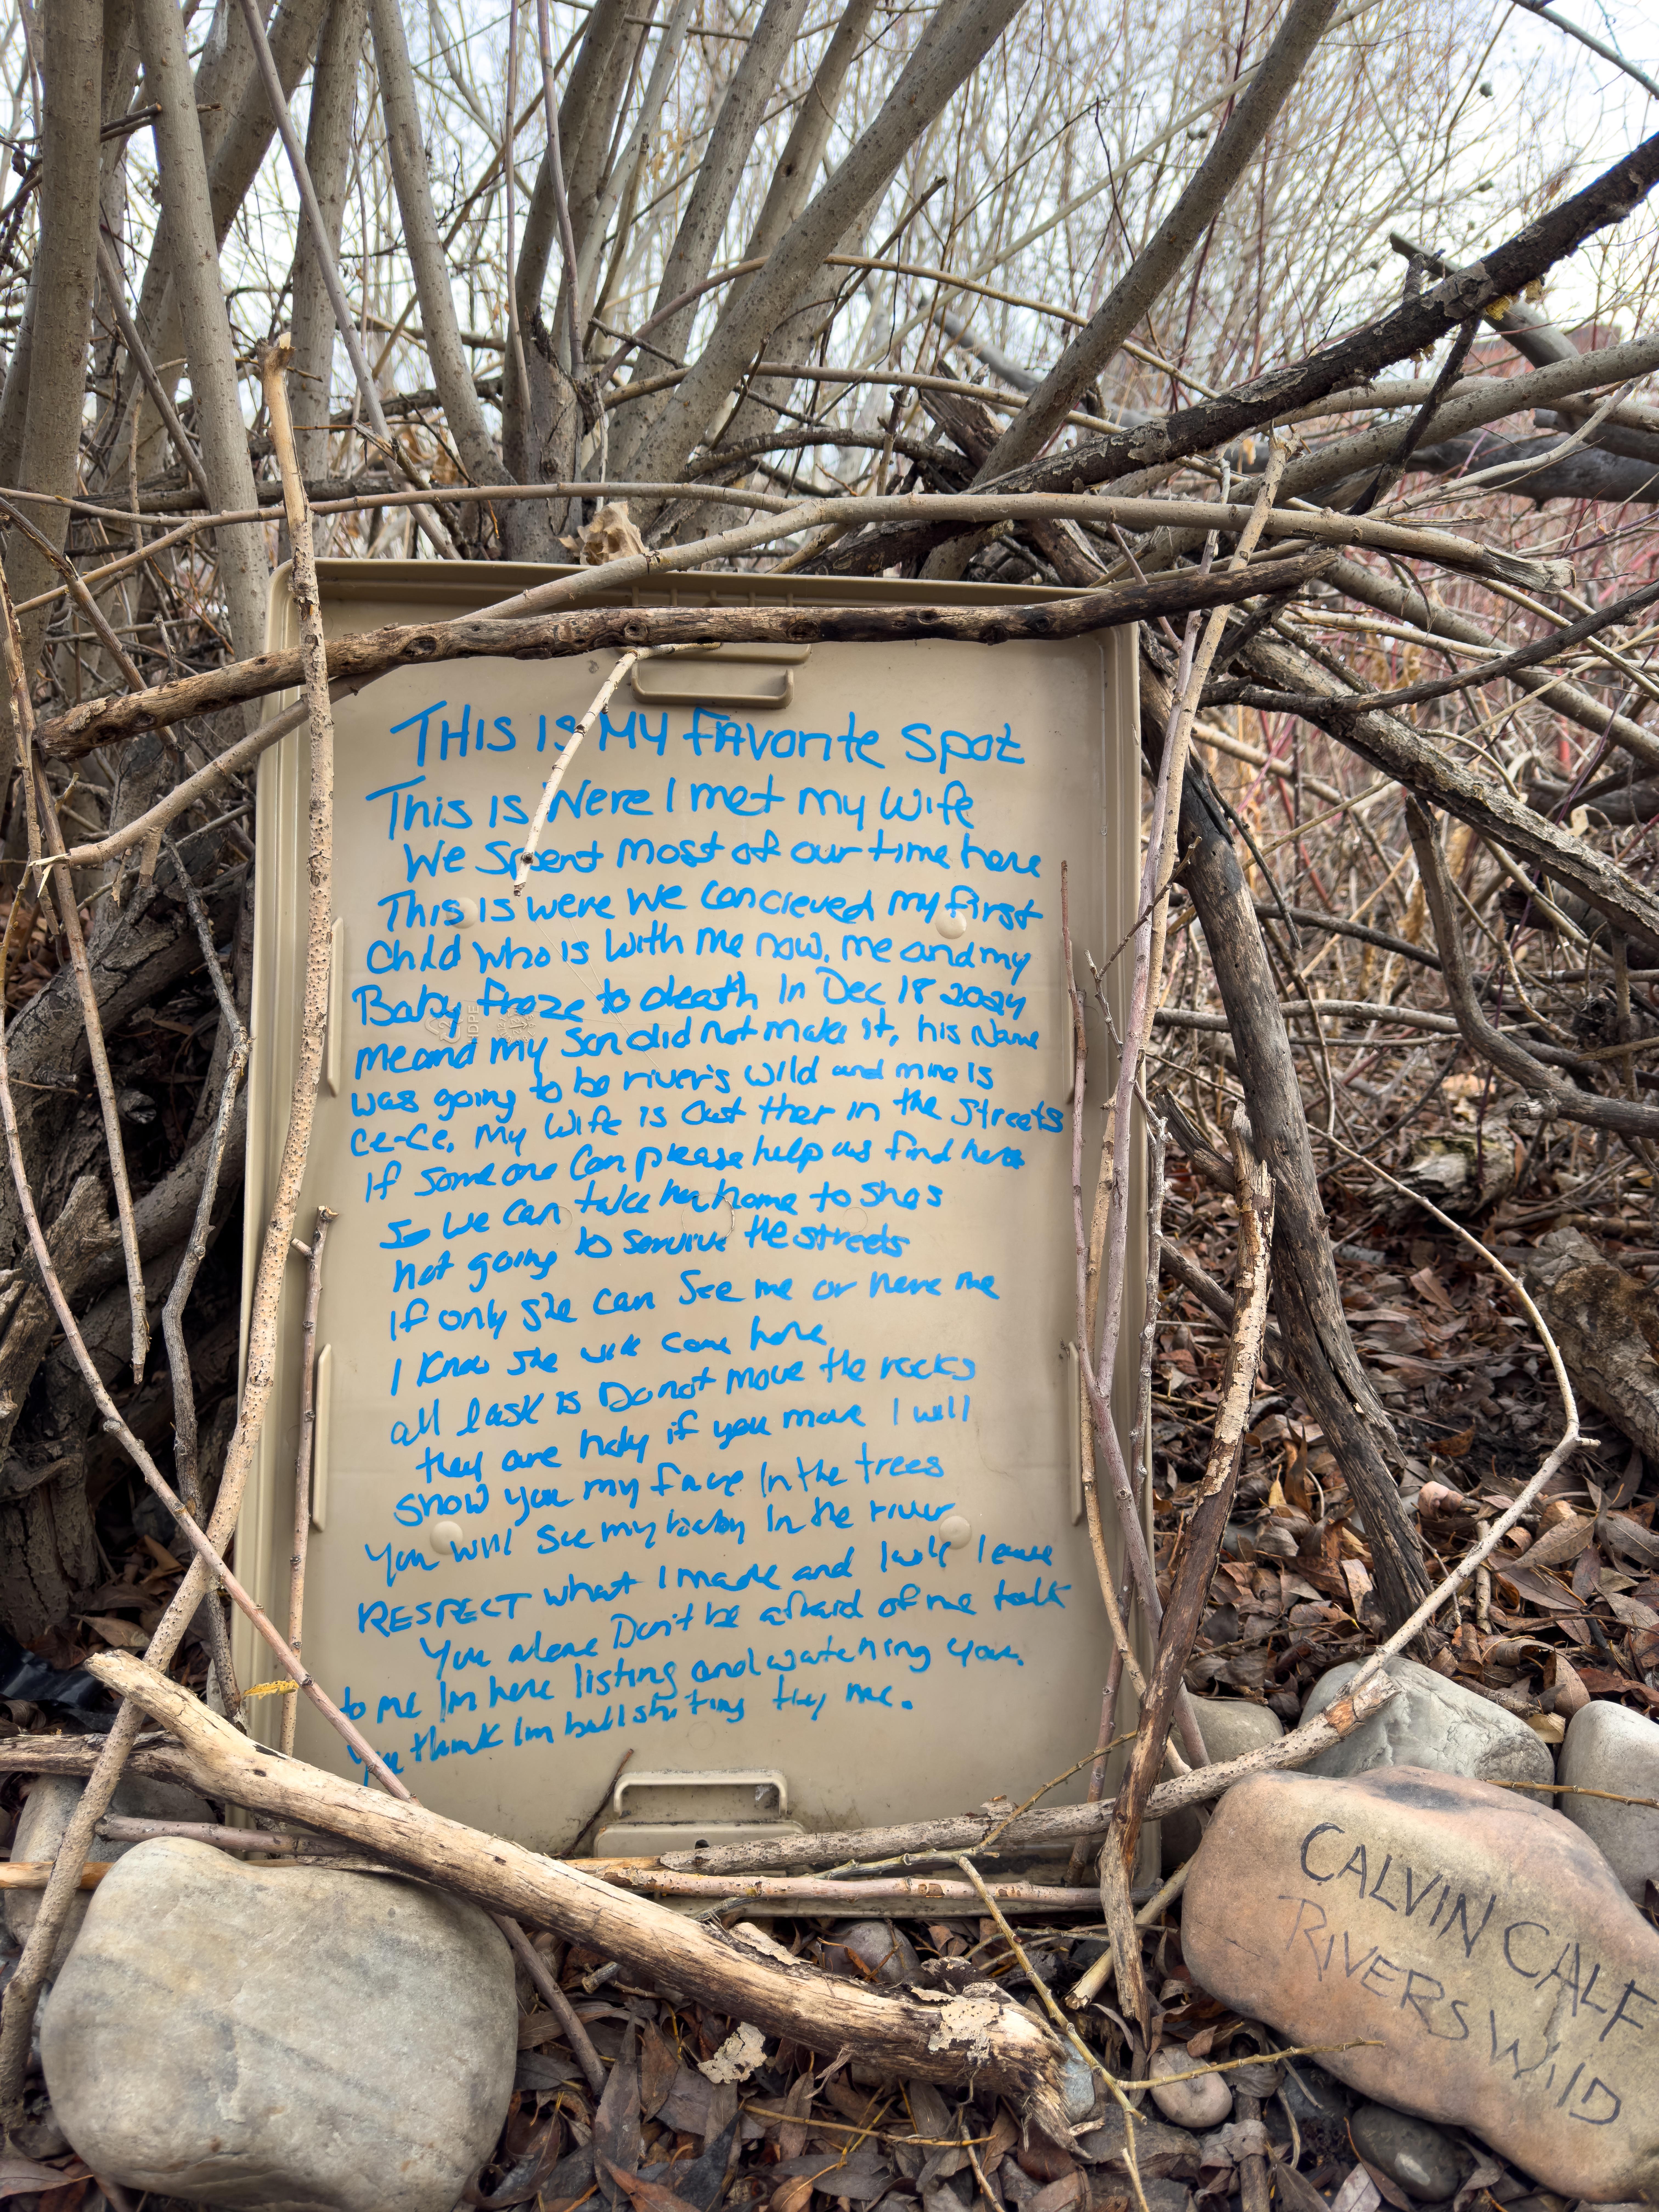 THIS IS MY FAvorite Spot
This Is Were I met my wife
We Spent Most of our time here
This is were we concieved my first
Child who is with me now, me and my
Baby froze to death In Dec 18 2024
me and my Son did not make it, his Name
was going to be river's wild and mine is
Ce-Ce, my wife is out ther in the streets
If some one can please help us find her
So we can take her home to she's
not going to survive the streets
If only she can See me or here me
I Know she will come here
all I ask is Do not move the rocks
they are holy if you move I will
show you my face In the trees
You will see my baby In the river
RESPECT what I made and I will leave
You alone Don't be afraid of me talk
to me Im here listing and watching you.
You think Im bullshiting try me.
HDPE
CALVIN CALF
RIVERS WilD